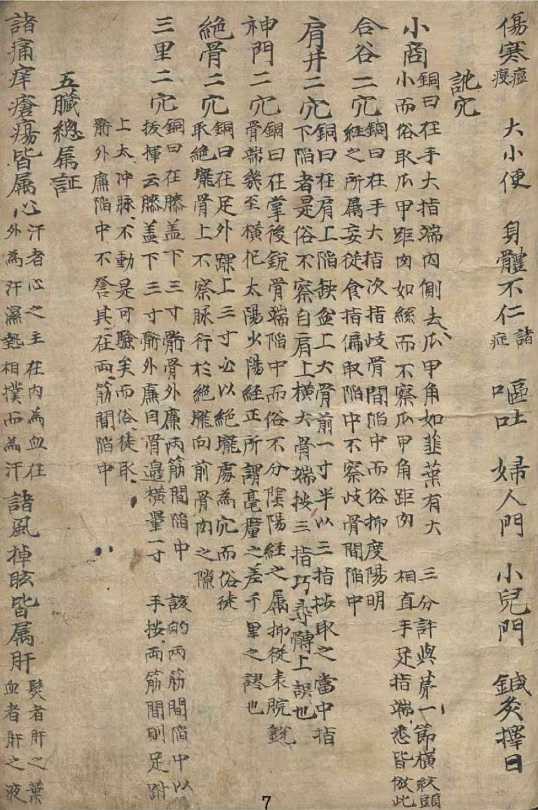 傷寒 瘟疫 大小便 身體不仁 諸症 嘔吐 婦人門 小兒門 鍼灸擇日
訛穴
小商 銅曰在手大指端內側去爪甲角如韭葉有大
小而俗取爪甲距肉如絲而不察爪甲角距肉
三分許與苐一節橫紋頭
相直手足指端悉皆倣此
合谷二穴 銅曰在手大指次指歧骨間陷中而俗抑度陽明
経之所属妄從食指偏取陷中不察歧骨間陷中
肩井二穴 銅曰在肩上陷缺盆上大骨前一寸半以三指按取之當中指
下陷者是俗不察自肩上橫大骨端按三指巧尋髆上誤也
神門二穴 銅曰在掌後銳骨端陷中而俗不分陰陽経之属抑從表腕銳
骨端幾至橫犯太陽火陽経正所謂毫釐之差千里之謬也
絶骨二穴 銅曰在足外踝上三寸必以絶壠處為穴而俗徒
取絶壠骨上不察脉行於絶壠向前骨肉之隙
三里二穴 銅曰在膝盖下三寸䯒骨外廉两筋間陷中
抜揮云膝盖下三寸䯒外廉自骨邉橫量一寸
該的两筋間陷中以
手按两筋間則足跗
上太冲脉不動是可驗矣而俗徒取
䯒外廉陷中不詧其在两筋間陷中
五臟總属証
諸痛痒瘡瘍皆属心 汗者心之主在內為血在
外為汗濕熱相撲而為汗
諸風掉眩皆属肝 髮者肝之葉
血者肝之液
7